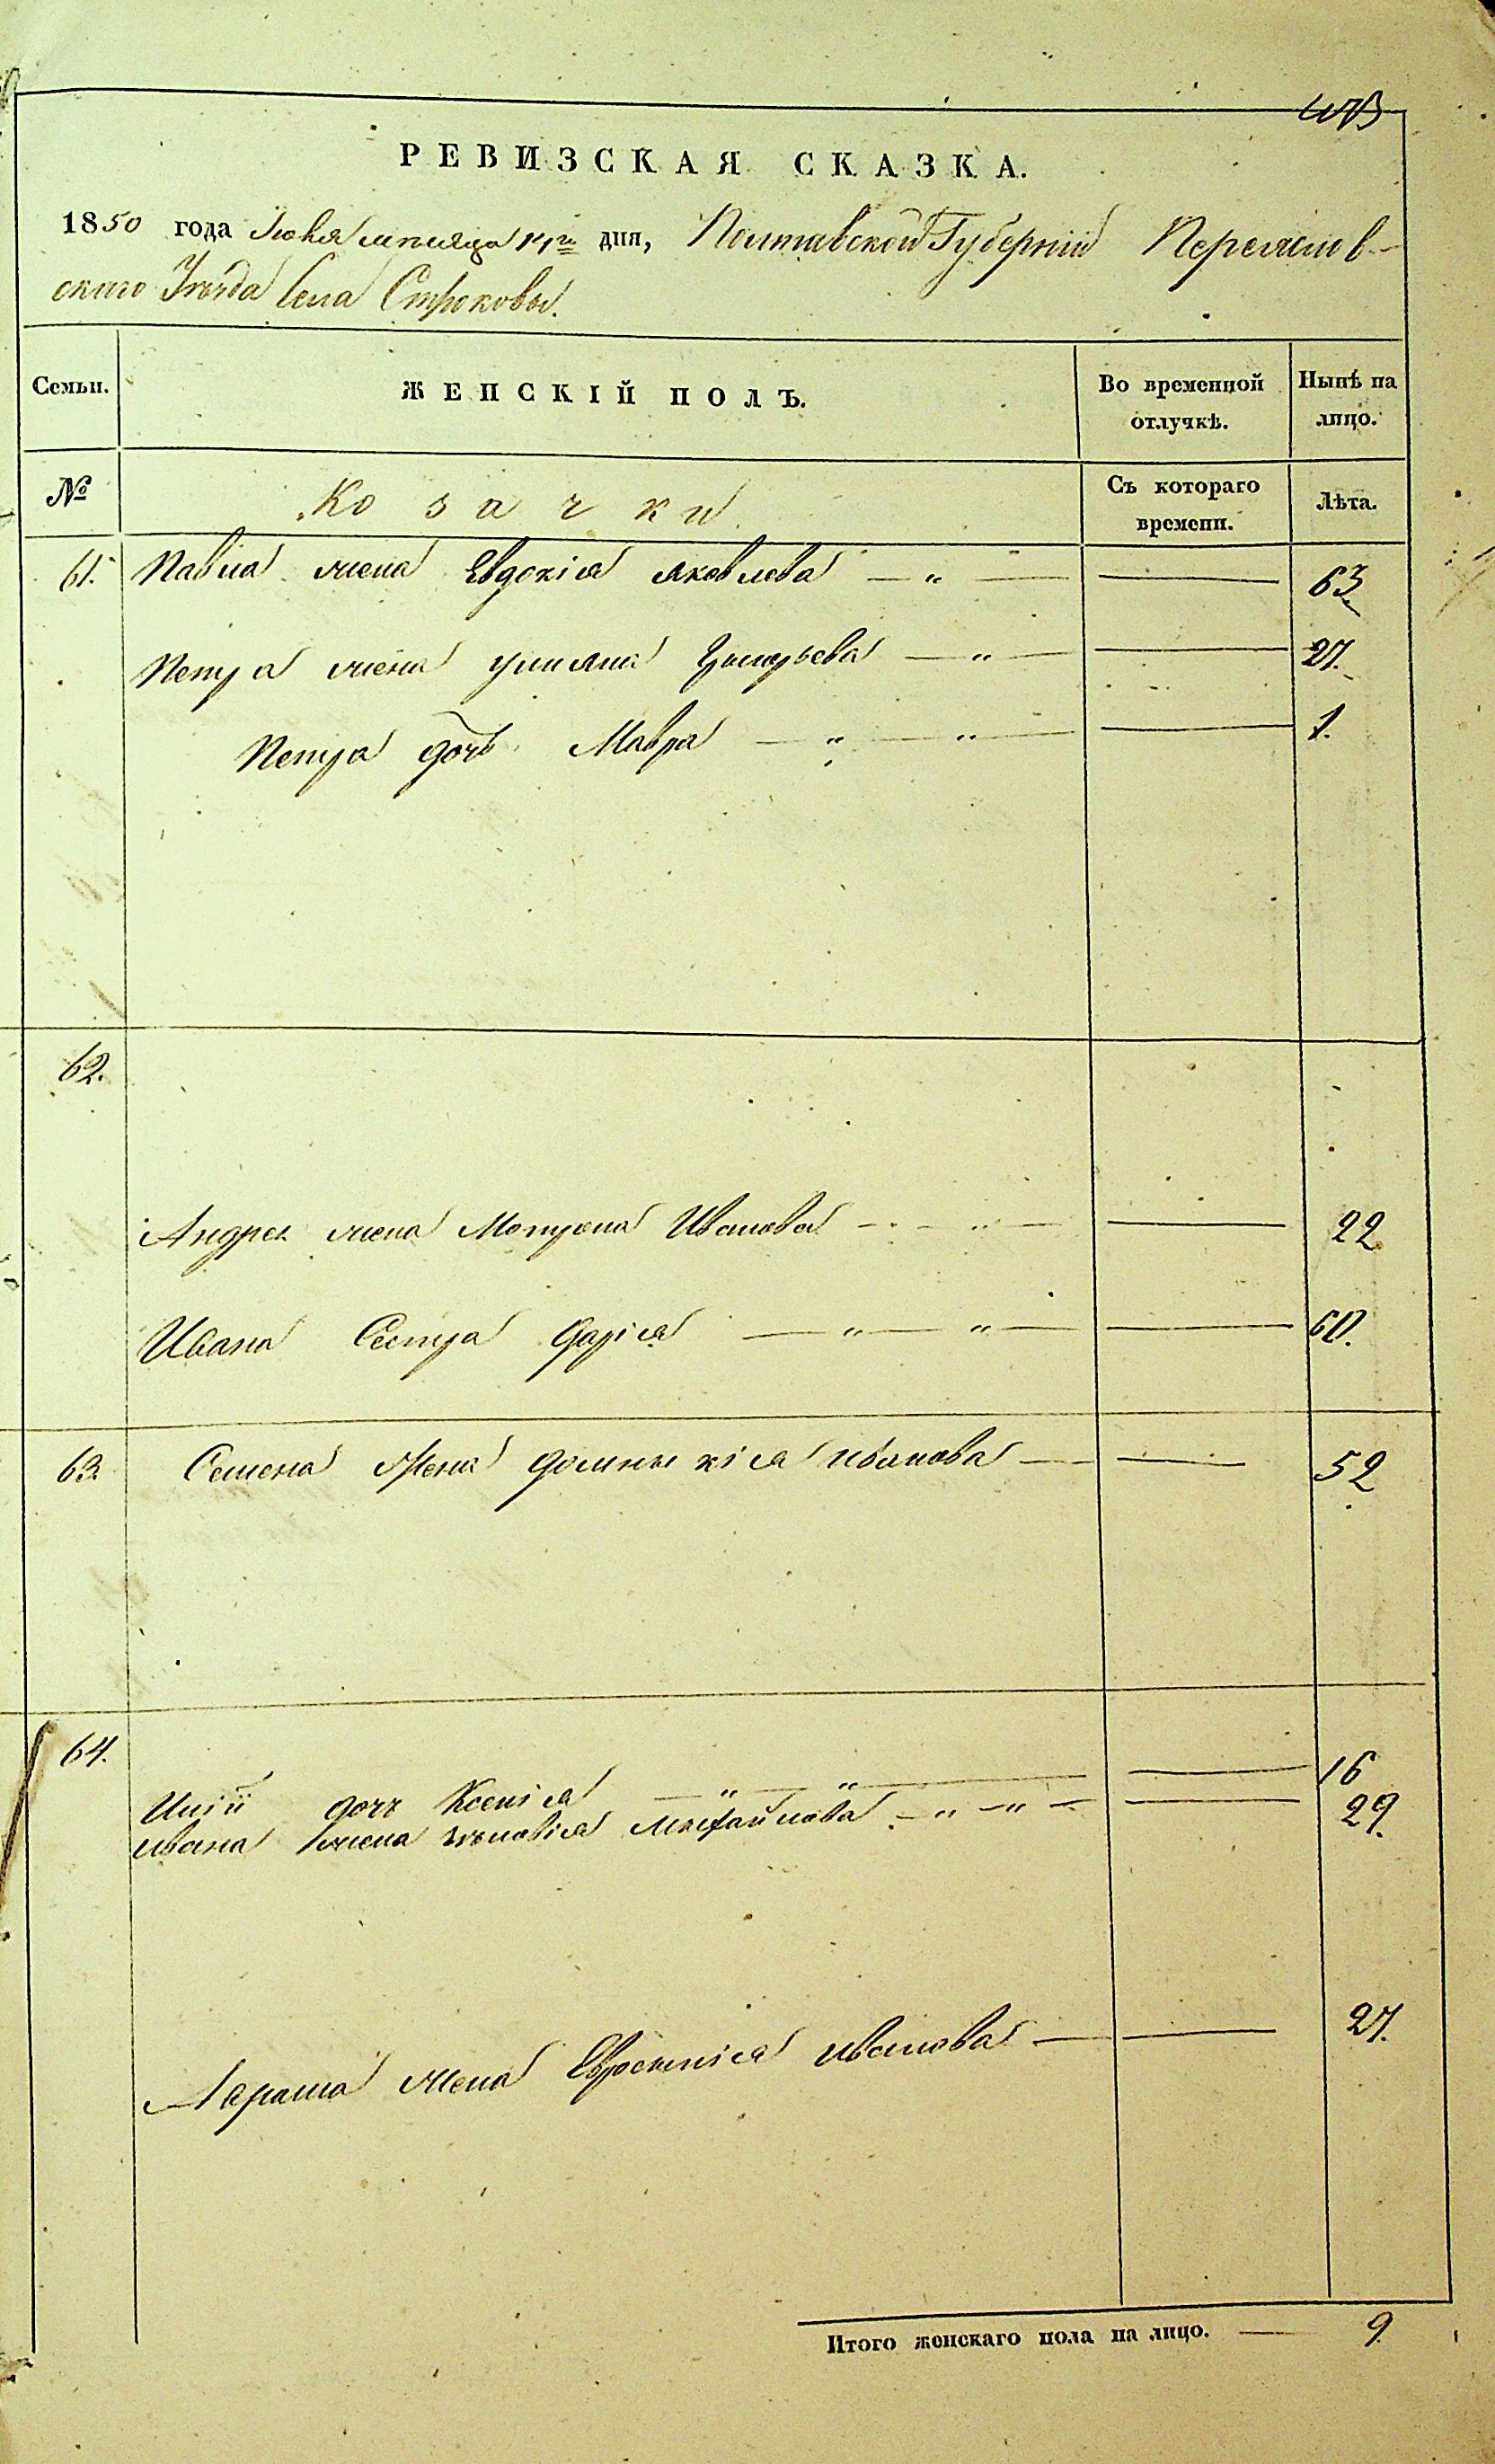 РЕВИЗСКАЯ СКАЗКА.
1850 года Июня месяца дня, Полтавской Губернии Переяслов-
скаго Уѣзда Села Строковы.
Семьи. ЖЕНСКІЙ ПОЛЪ. Во временной отлучкѣ. Нынѣ на лицо.
№ Козачки Съ котораго времени. Лѣта.
61. Павла жена Евдокія Яковлева — „ — — 63
Петра жена Улияна Григорьева — „ — — 27.
Петра дочь Мавра — „ — „ — — 1.
62.
Андрея жена Мотрона Иванова — „ — — 22
Ивана Сестра Дарія — „ — „ — — 60.
63. Семена Жена Домникія Иванова — — 52
64.
Иліи дочь Ксенія — „ — „ — — 16
Ивана жена Михайлова — „ — „ — — 29.
жена Евросинія Иванова — — 27.
Итого женскаго пола на лицо. — 9.